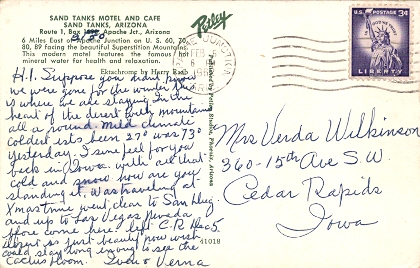 SAND TANKS MOTEL AND CAFE
SAND TANKS, ARIZONA
Route 1, Box Apache Jct., Arizona
6 Miles East of Apache Junction on U. S. 60, 70,
80, 89 facing the beautiful Superstition Mountains.
This modern motel features the famous hot
mineral water for health and relaxation.
Ektachrome by Harry
Petley
FEB
U.S. POSTAGE 3¢
IN GOD WE TRUST
LIBERTY
H.I. Suppose you didn't know
we were gone for the winter this
is where we are staying in the
heart of the desert with mountains
all around mild climate
coldest its been 27° was 73°
yesterday. I sure feel for you
back in Iowa with all that
cold and snow how are you
standing it. was traveling at
Xmas time went clear to San Diego
and up to Las Vegas Nevada
before come here left C.R. Dec 5
desert is just beauty now wish
could stay long enough to see the
Cactus bloom. & Verna
Mrs Verda Wilkinson
360-15th Ave S.W.
Cedar Rapids
Iowa
41018
Phoenix, Arizona